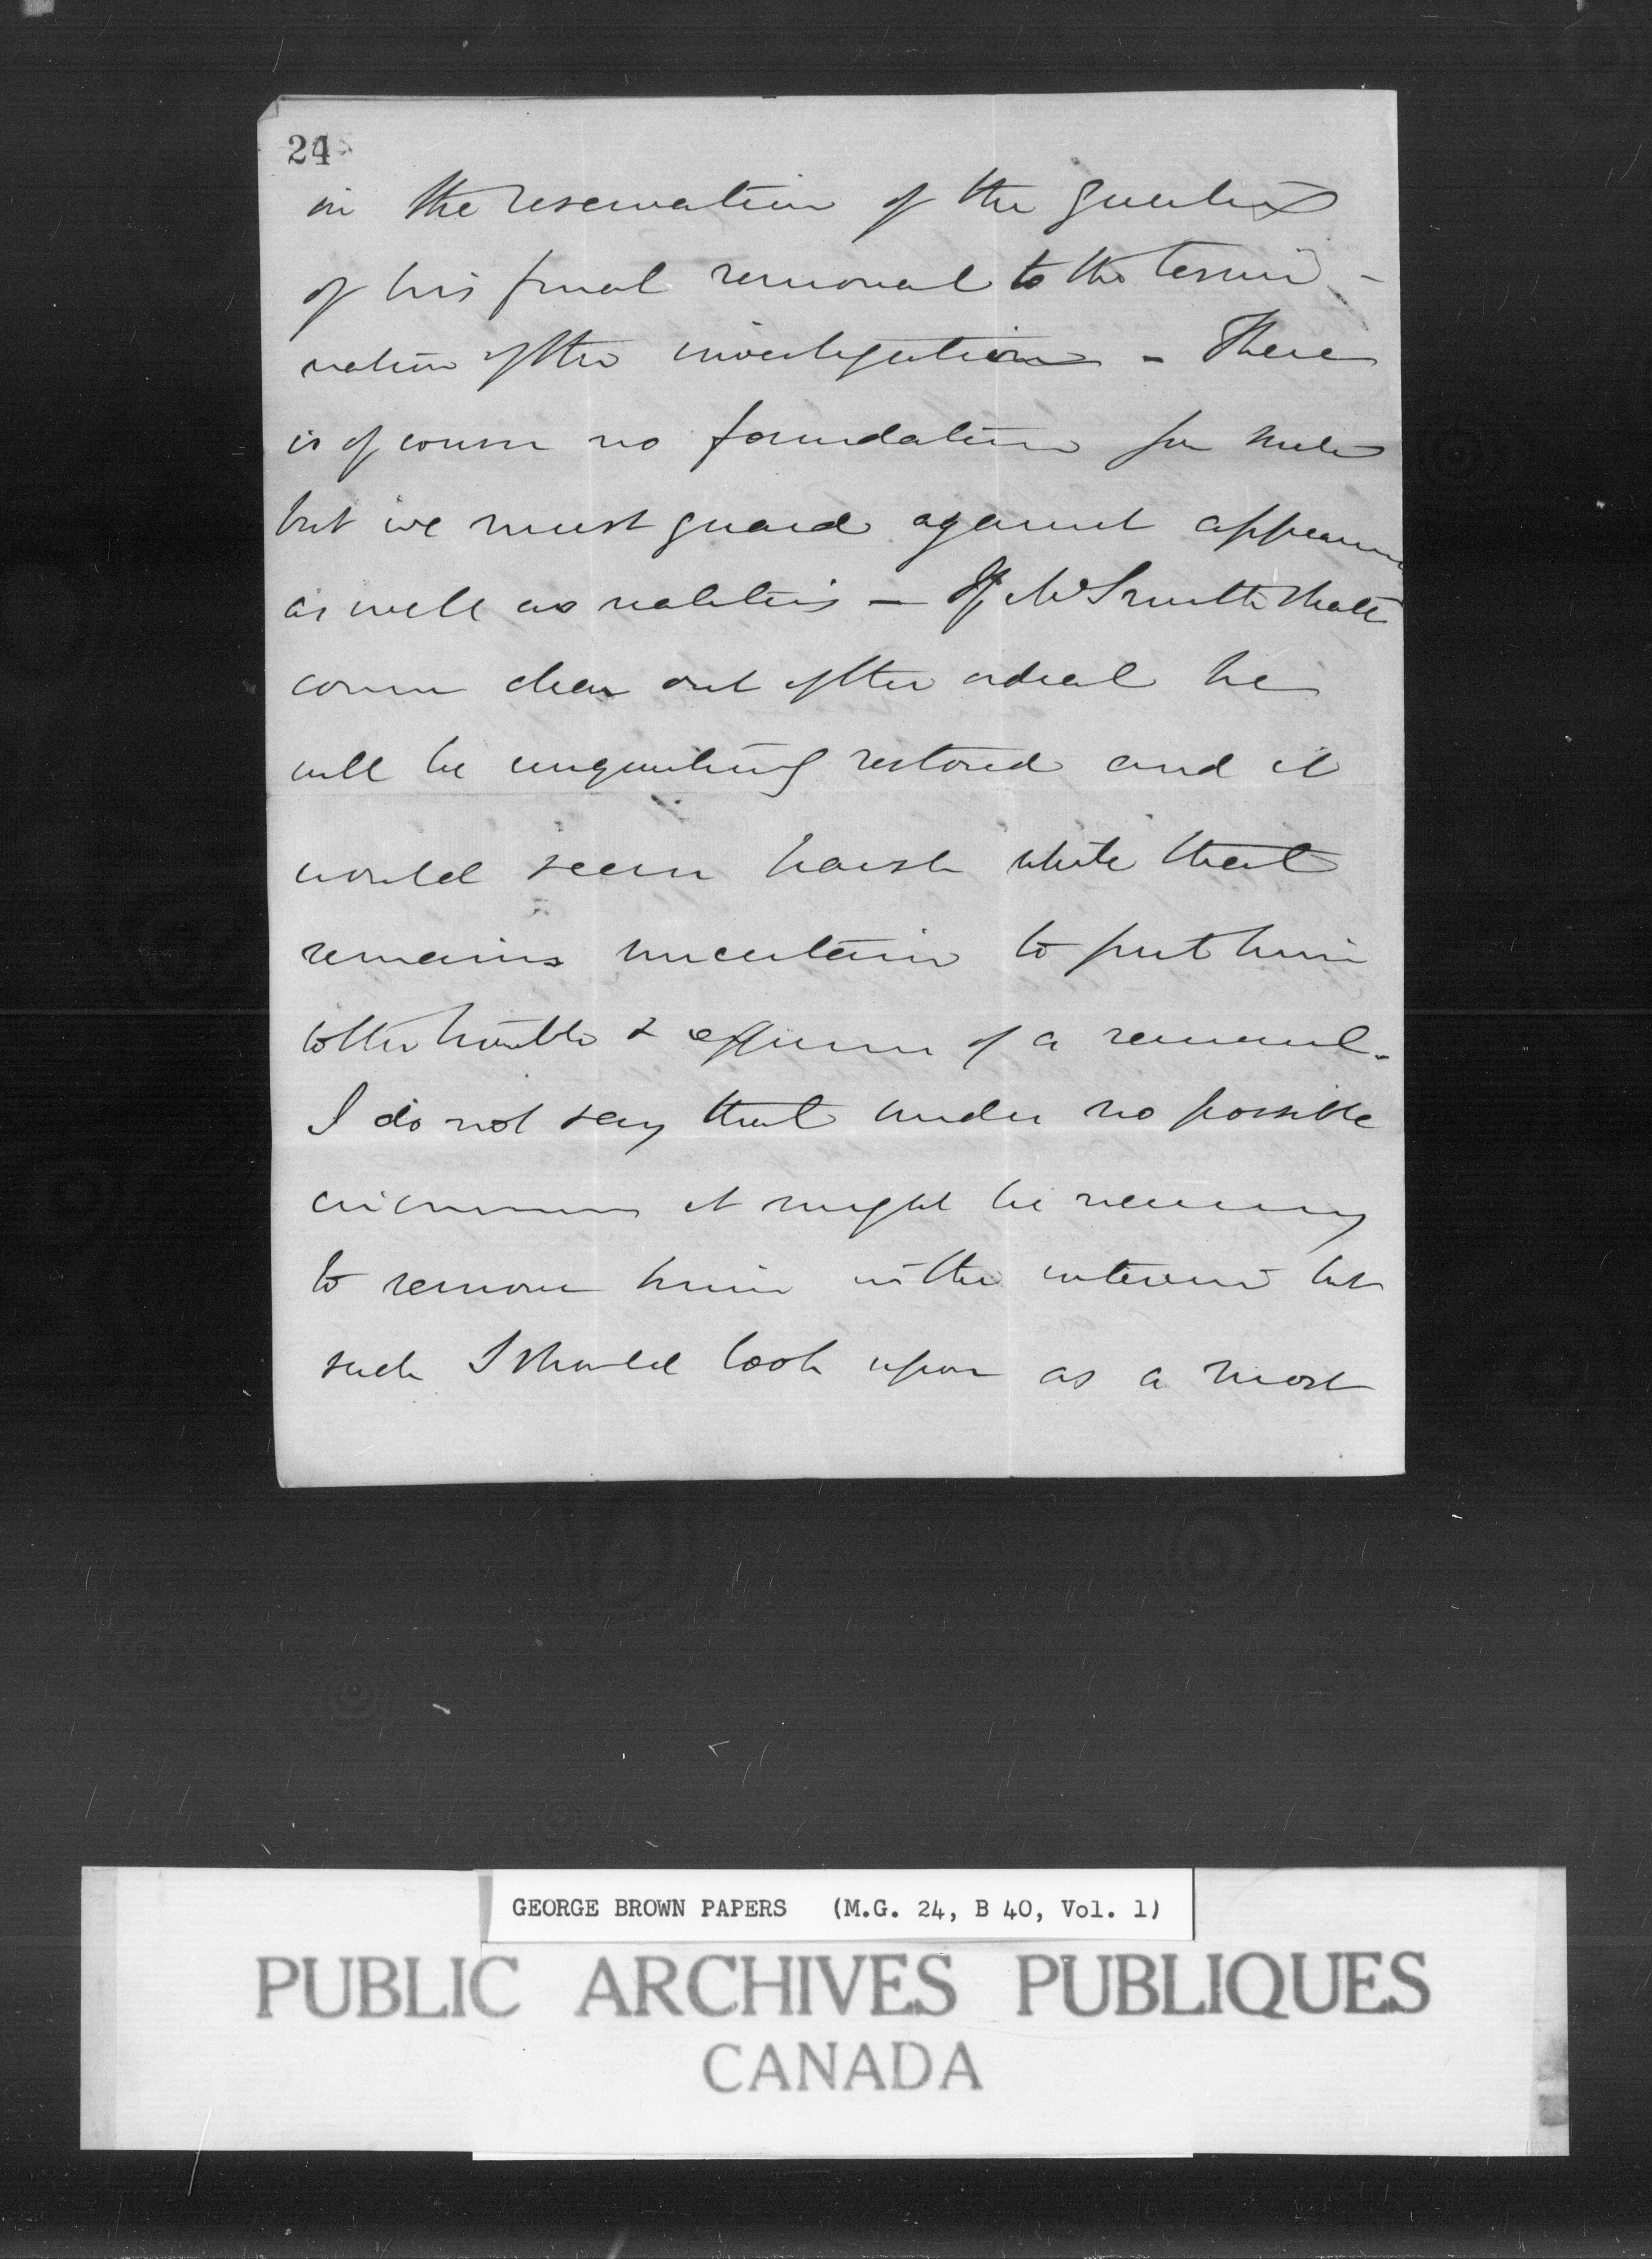 24
in the reservation of the question
of his final removal to the termi-
nation of the investigation - There
is of course no foundation for such
but we must guard against appearances
as well as realities - If Mr Smith shall
come clear out of the ordeal he
will be unquestiong restored and it
would seem harsh while that
remains uncertain to put him
to the trouble & expense of a removal.
I do not say that under no possible
circumstances it might be necessary
to remove him in the interim but
such I should look upon as a most
GEORGE BROWN PAPERS (M.G. 24, B 40, Vol. 1)
PUBLIC ARCHIVES PUBLIQUES
CANADA